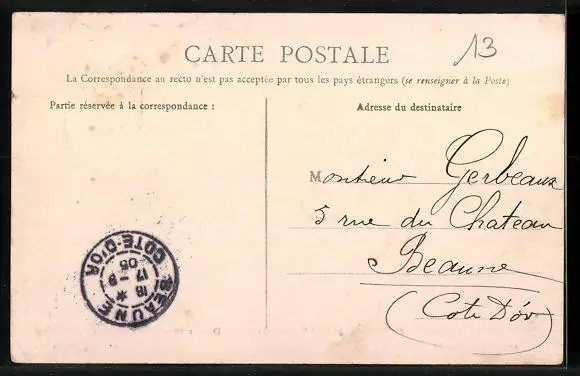 13
CARTE POSTALE
La Correspondance au recto n'est pas acceptée par tous les pays étrangers (se renseigner à la Poste)
Partie réservée à la correspondance :
Adresse du destinataire
Monsieur Gerbeaux
5 rue du Chateau
Beaune
(Cote D'or)
BEAUNE
18 *
17 - 9
05
COTE-D'OR